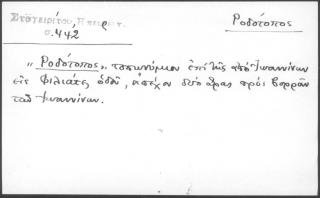 Στουγειρίτου Ἤπειρος
σ. 442
Ροδότοπος
"Ροδότοπος", τοπωνύμιον ἐπὶ τῆς ἀπὸ Ἰωαννίνων
εἰς Φιλιάτες ὁδοῦ, ἀπέχον δύο ὥρας πρὸς βορρᾶν
τῶν Ἰωαννίνων.